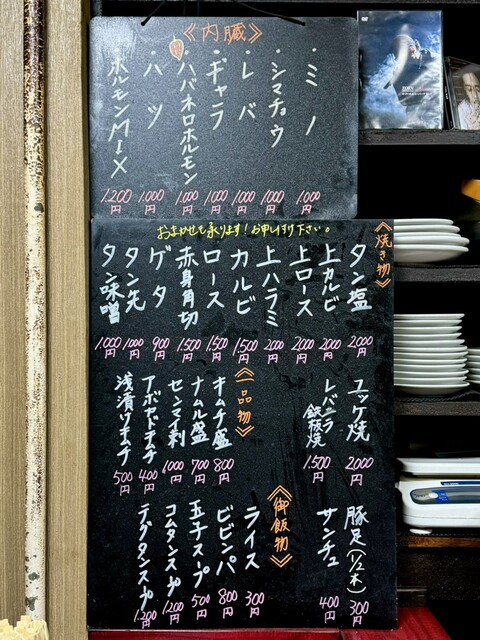 《内臓》
・ミノ 1000円
・シマチョウ 1000円
・レバ 1000円
・ギャラ 1000円
・ハバネロホルモン 1000円
・ハツ 1000円
・ホルモンMIX 1.200円
おまかせも承ります！お申し付け下さい。
《焼き物》
タン塩 2000円
上カルビ 2000円
上ロース 2000円
上ハラミ 2000円
カルビ 1,500円
ロース 1500円
赤身角切 1.500円
ゲタ 900円
タン先 1000円
タン味噌 1000円
ユッケ焼 2000円
レバニラ鉄板焼 1.500円
《一品物》
キムチ盛 800円
ナムル盛 700円
センマイ刺 1000円
アボカドキムチ 400円
浅漬けキムチ 500円
豚足(1/2本) 300円
サンチュ 400円
《御飯物》
ライス 300円
ビビンバ 800円
玉子スープ 500円
コムタンスープ 1.200円
テグタンスープ 1.200円